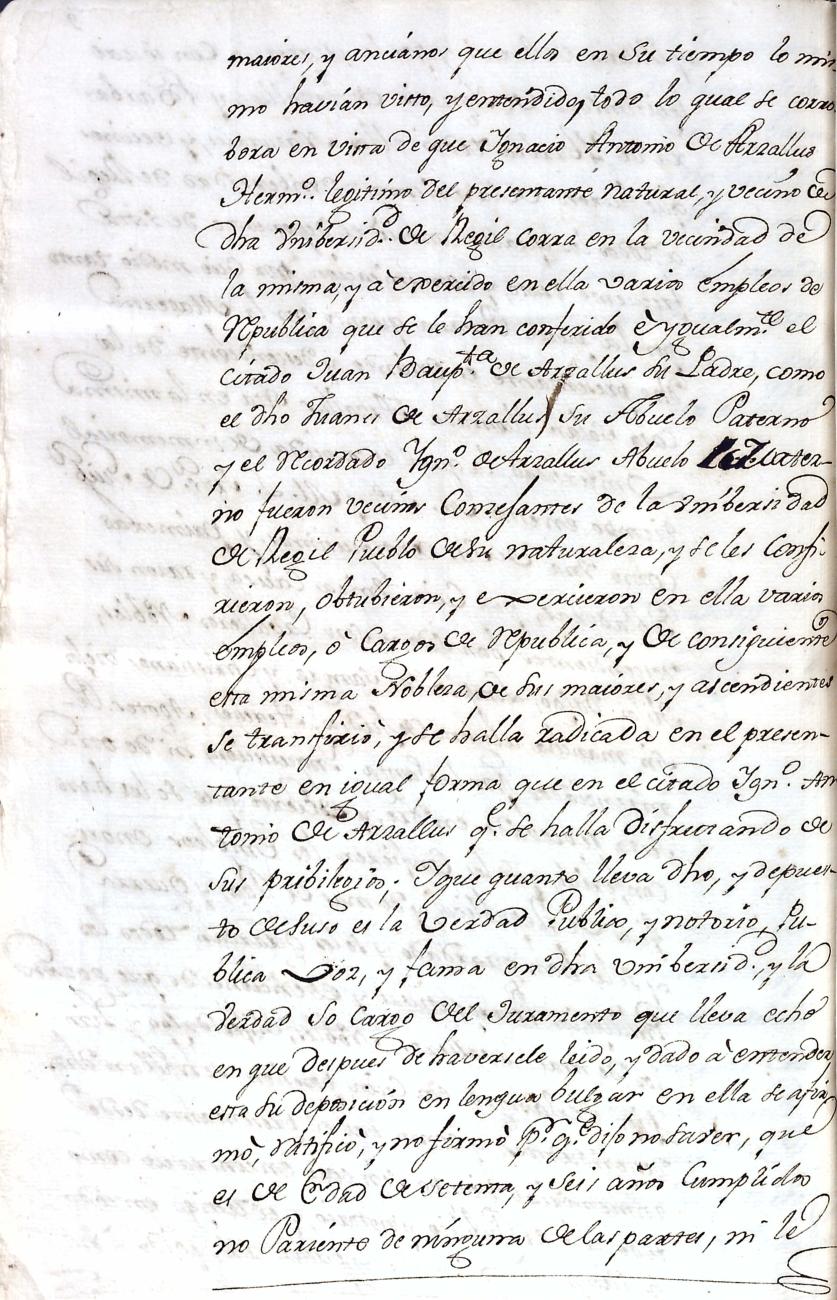 maiores, y anciános que ellos en su tiempo lo mis-
mo havián visto, y entendido, todo lo qual se corro
bora en vista de que Ygnacio Antonio de Arzallus
Herm.º legitimo del presentante natural, y vecino de
dha Vnibersid.d de Regil corra en la vecindad de
la misma, y à exercido en ella varios empleos de
Republica que se le han conferido è ygualm.te el
citado Juan Baup.ta de Arzallus su Padre, como
el dho Juanes de Arzallus su Abuelo Paterno
y el Recordado Ygn.º de Arzallus Abuelo Mater-
no fueron vecinos Concesantes de la Vnibersidad
de Regil Pueblo de su naturaleza, y se les Confi-
rieron, obtubieron, y exercieron en ella varios
empleos, ò Cargos de Republica, y de consiguiente
esta misma Nobleza, de sus maiores, y ascendientes
se transfirio, y se halla radicada en el presen-
tante en igual forma que en el citado Ygn.º An
tonio de Arzallus q.e se halla disfrutando de
sus pribilegios,. Y que quanto lleva dho, y depues-
to de suso es la Verdad Publico, y notorio, Pu-
blica Voz, y fama en dha Vnibersid.d, y la
Verdad so cargo del Juramento que lleva echo
en que despues de haversele leido, y dado à entender,
esta su deposición en lengua bulgar en ella se afir
mò, Ratificò, y no firmò p.r q.e dijo no saver, que
es de Edad de setenta, y seis años Cumplidos
no Pariente de ninguna de las partes, ni le